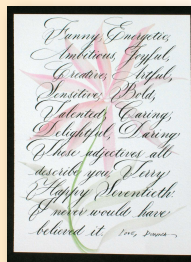 Funny, Energetic,
Ambitious, Joyful,
Creative, Artful,
Sensitive, Bold,
Talented, Caring,
Delightful, Daring
These adjectives all
describe you, Terry
Happy Seventieth!
I never would have
believed it. Love,